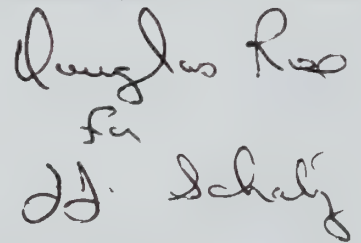 Douglas Rae
for
JJ. Schatz